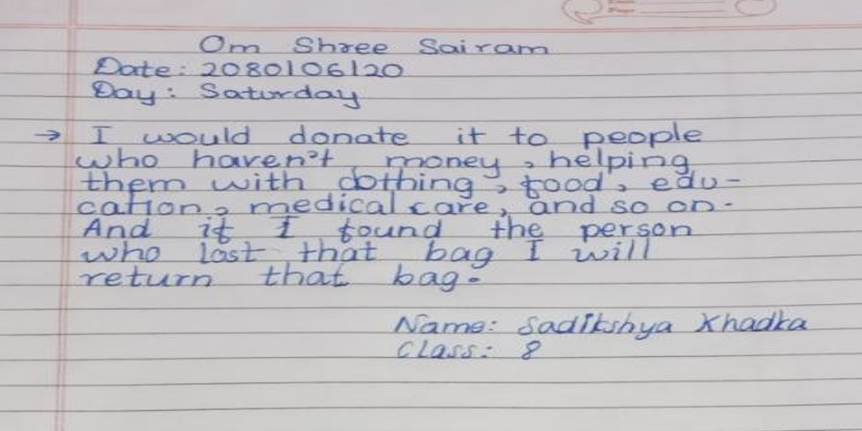 Om Shree Sairam
Date: 2080/06/20
Day: Saturday
→ I would donate it to people
who haven't money, helping
them with clothing, food, edu-
cation, medical care, and so on.
And if I found the person
who lost that bag I will
return that bag.
Name: Sadikshya Khadka
Class: 8